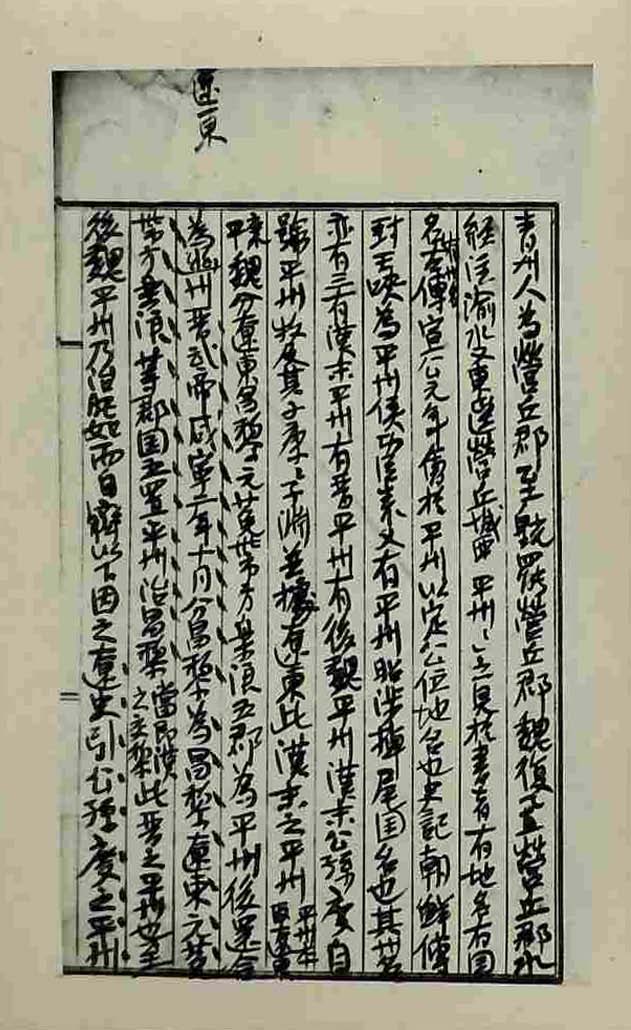 遼東
青州人為營丘郡至貌罷營丘郡魏復置營丘郡水
經注渝水又東逕營丘城西 平州之見於書者有地名有國
名有州名左傳宣公元年會於平州以定公位地名也史記朝鮮傳
封王唊為平州侯功臣表又有平州昭涉掉尾國名也其州名
亦有三有漢末平州有晉平州有後魏平州漢末公孫度自
號平州牧及其子康康子淵並據遼東此漢末之平州
平州本治在遼東
魏分遼東昌黎元菟帶方樂浪五郡為平州後還合
為幽州晉武帝咸寧二年十月分昌黎為昌黎遼東元菟
帶方樂浪等郡國五置平州治昌黎當即漢之交黎此晉之平州也至
後魏平州乃治肥如而日以下因之遼史引公孫度之平州